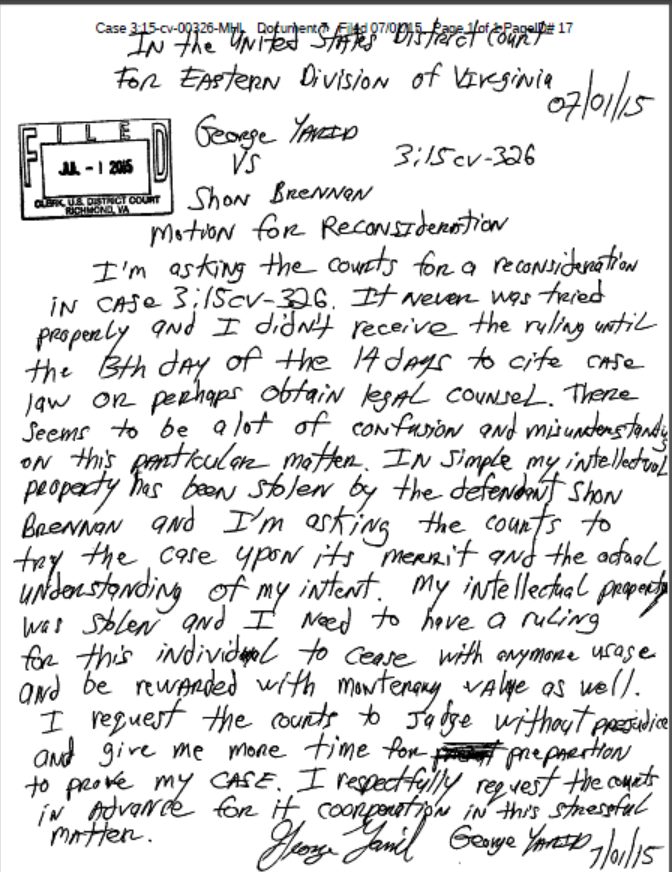 Case 3:15-cv-00326-MHL Document 7 Filed 07/01/15 Page 1 of 1 PageID# 17
In the United States District Court
For Eastern Division of Vireginia
07/01/15
George Yarid
VS
3:15cv-326
Shon Brennan
FILED
JUL - 1 2015
CLERK, U.S. DISTRICT COURT
RICHMOND, VA
Motion for Reconsideration
I'm asking the courts for a reconsideration
in case 3:15cv-326. It never was tried
properly and I didn't receive the ruling until
the 13th day of the 14 days to cite case
law or perhaps obtain legal counsel. There
seems to be alot of confusion and misunderstanding
on this particular matter. In simple my intellectual
property has been stolen by the defendant Shon
Brennan and I'm asking the courts to
try the case upon its merrit and the actual
understanding of my intent. My intellectual property
was stolen and I need to have a ruling
for this individual to cease with anymore usage
and be rewarded with montenary value as well.
I request the courts to Jadge without prejudice
and give me more time for prepartion
to prove my case. I respectfully request the courts
in advance for it cooporation in this stressful
matter.
George Yarid George Yarid 7/01/15